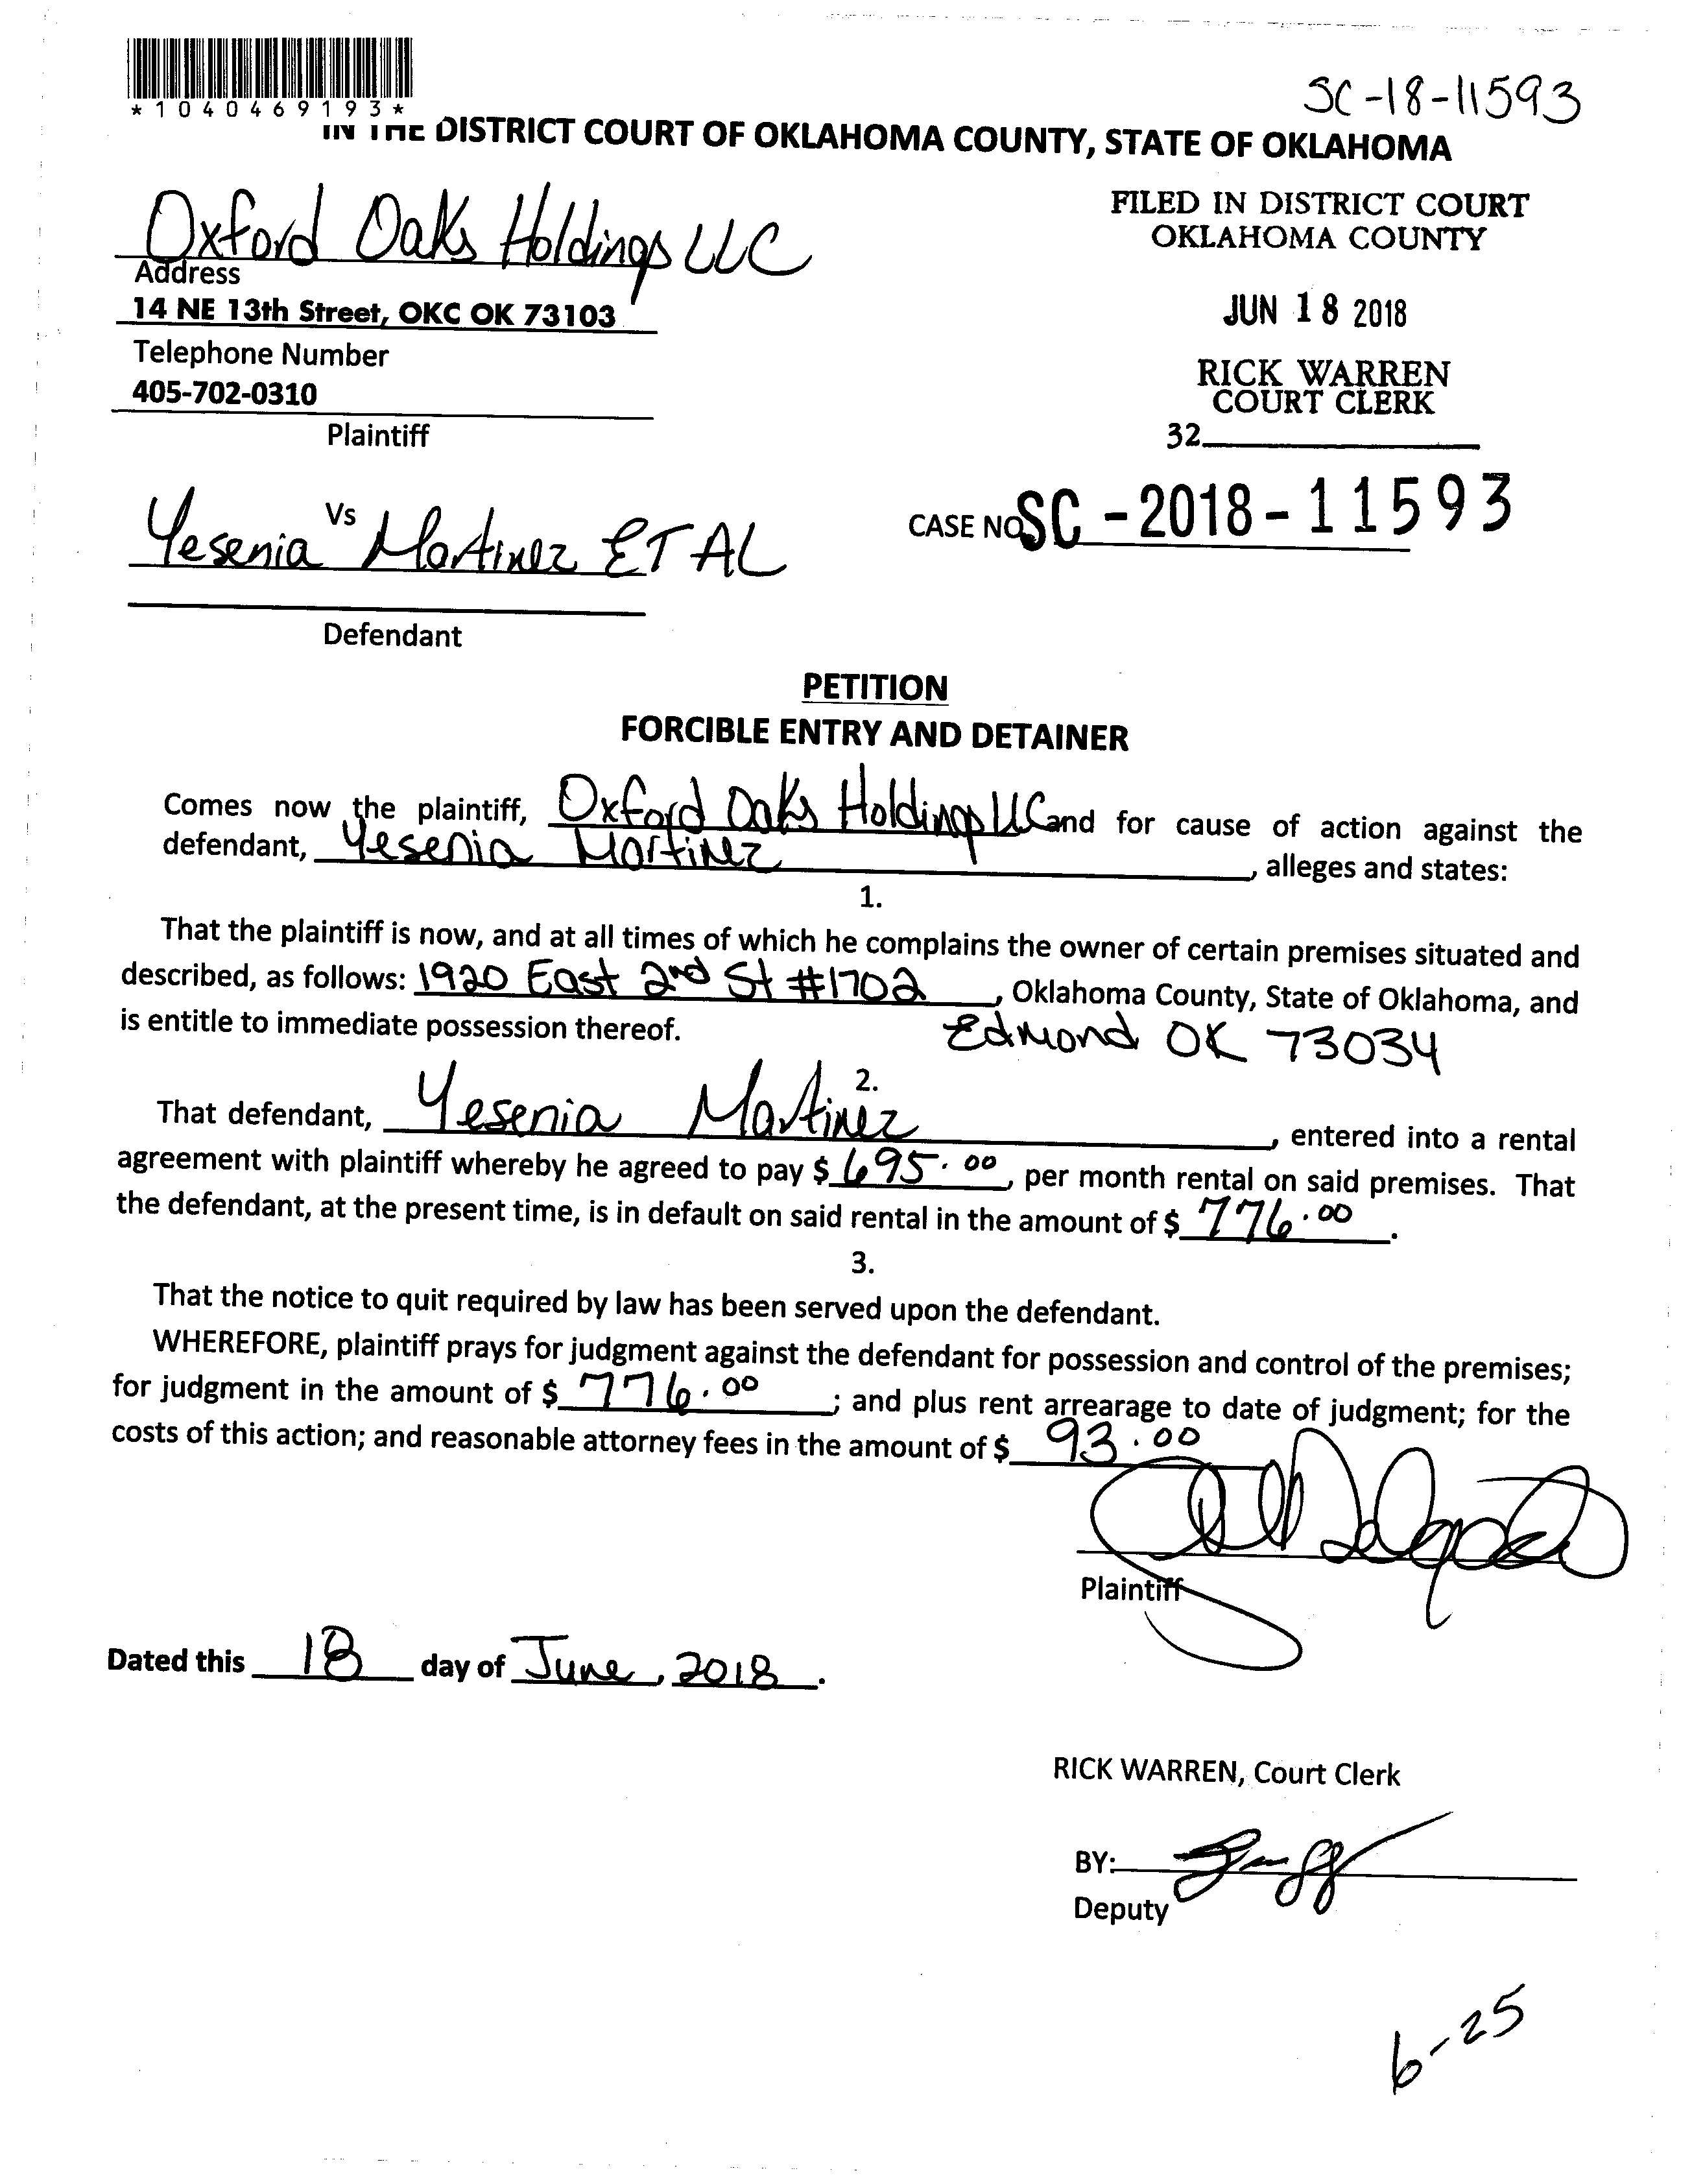 *1040469193*
SC-18-11593
IN THE DISTRICT COURT OF OKLAHOMA COUNTY, STATE OF OKLAHOMA
Oxford Oaks Holdings LLC
Address
14 NE 13th Street, OKC OK 73103
Telephone Number
405-702-0310
Plaintiff
FILED IN DISTRICT COURT
OKLAHOMA COUNTY
JUN 18 2018
RICK WARREN
COURT CLERK
32
Vs
Yesenia Martinez ET AL
Defendant
CASE NO SC-2018-11593
PETITION
FORCIBLE ENTRY AND DETAINER
Comes now the plaintiff, Oxford Oaks Holdings LLC and for cause of action against the
defendant, Yesenia Martinez, alleges and states:
1.
That the plaintiff is now, and at all times of which he complains the owner of certain premises situated and
described, as follows: 1920 East 2nd St #1702, Oklahoma County, State of Oklahoma, and
is entitle to immediate possession thereof. Edmond OK 73034
2.
That defendant, Yesenia Martinez, entered into a rental
agreement with plaintiff whereby he agreed to pay $ 695.00, per month rental on said premises. That
the defendant, at the present time, is in default on said rental in the amount of $ 776.00.
3.
That the notice to quit required by law has been served upon the defendant.
WHEREFORE, plaintiff prays for judgment against the defendant for possession and control of the premises;
for judgment in the amount of $ 776.00; and plus rent arrearage to date of judgment; for the
costs of this action; and reasonable attorney fees in the amount of $ 93.00
Plaintiff
Dated this 18 day of June, 2018.
RICK WARREN, Court Clerk
BY:
Deputy
6-25